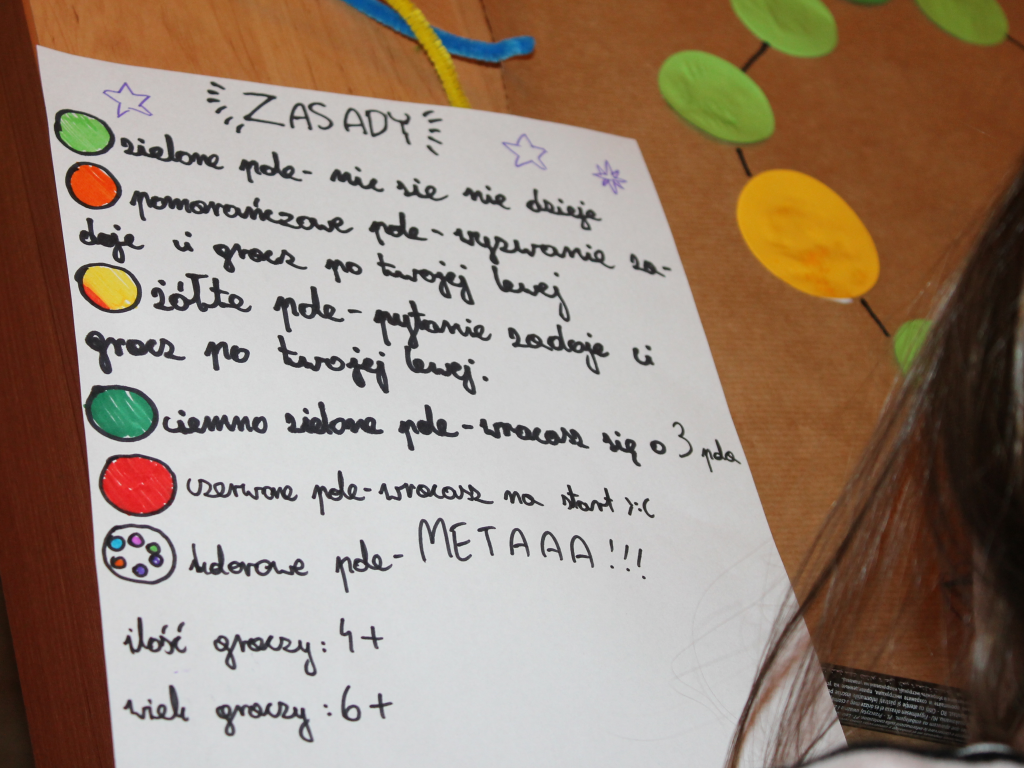 ZASADY
zielone pole - nic sie nie dzieje
pomarańczowe pole - wyzwanie za-
daje ci gracz po twojej lewej
żółte pole - pytanie zadaje ci
gracz po twojej lewej.
ciemno zielone pole - wracasz się o 3 pola
czerwone pole - wracasz na start >:(
kolorowe pole - METAAA!!!
ilość graczy: 4+
wiek graczy: 6+